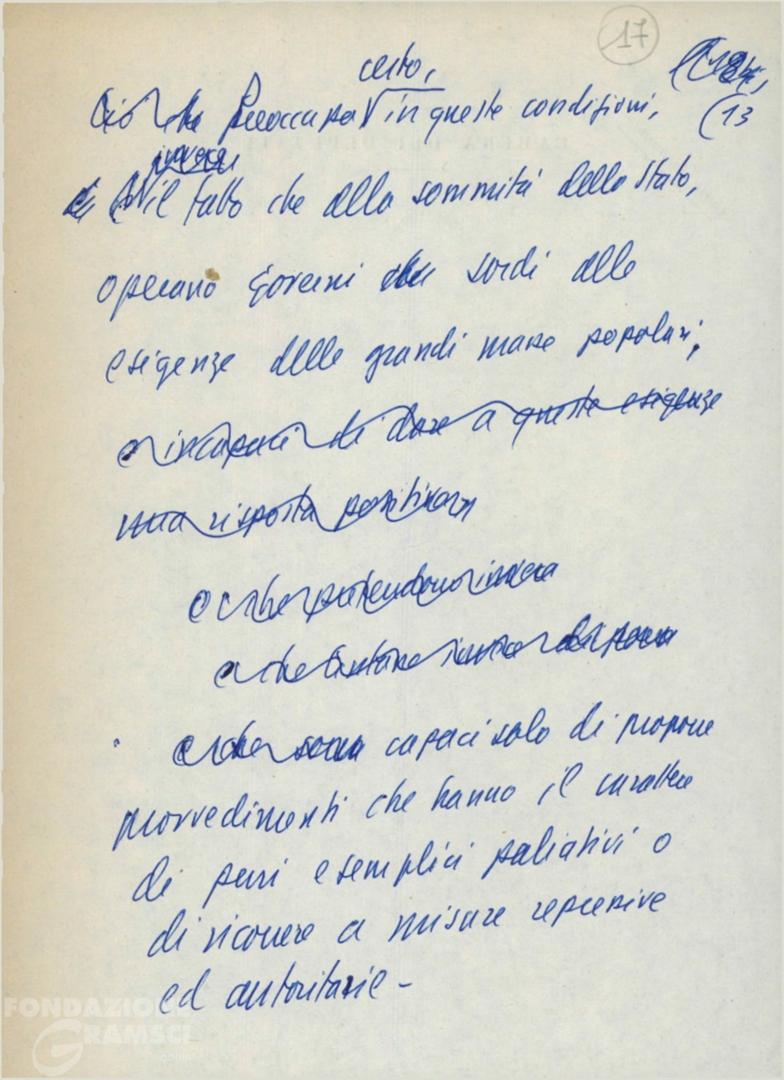 17
certo,
Ciò che preoccupa in queste condizioni,
(13
invece
è il fatto che alla sommità dello Stato,
operano Governi sordi alle
esigenze delle grandi masse popolari,
e incapaci di dare a queste esigenze
una risposta positiva
e che pretendono invece
e che
e che sono capaci solo di proporre
provvedimenti che hanno il carattere
di puri e semplici paliativi o
di ricorrere a misure repressive
ed autoritarie -
FONDAZIONE
GRAMSCI